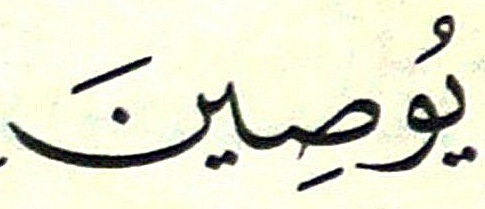 يُوصِينَ